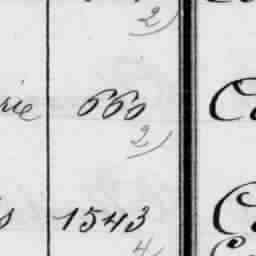 2)
rie 660 C
2)
s 1543 C
4)